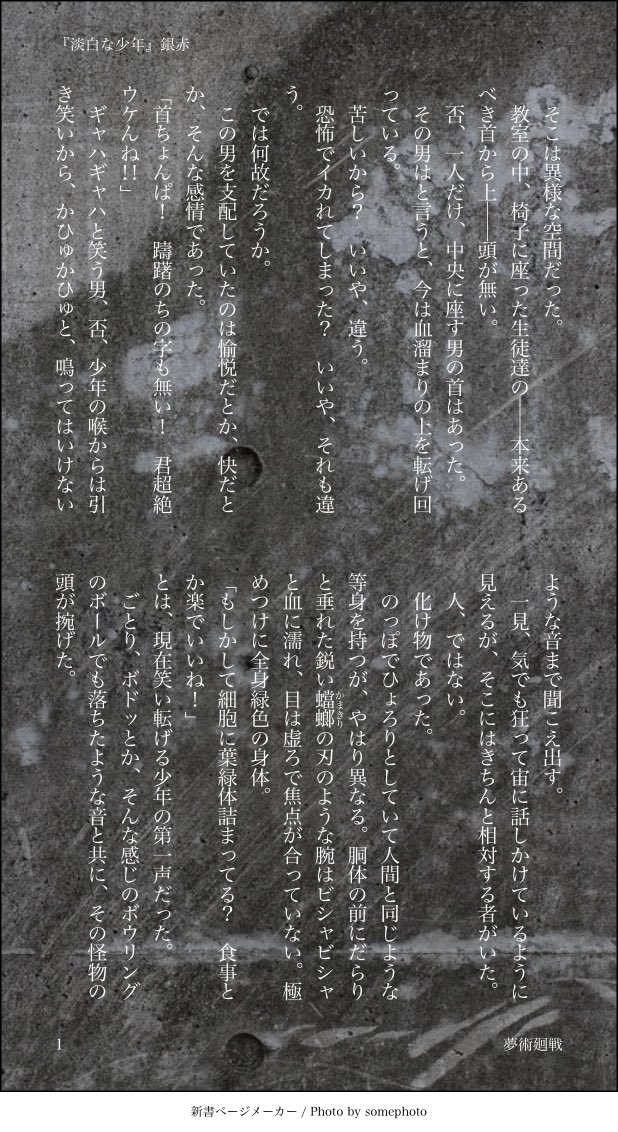 『淡白な少年』銀赤
　そこは異様な空間だった。
　教室の中、椅子に座った生徒達の――本来ある
べき首から上――頭が無い。
　否、一人だけ、中央に座す男の首はあった。
　その男はと言うと、今は血溜まりの上を転げ回
っている。
　苦しいから？　いいや、違う。
　恐怖でイカれてしまった？　いいや、それも違
う。
　では何故だろうか。
　この男を支配していたのは愉悦だとか、快だと
か、そんな感情であった。
「首ちょんぱ！　躊躇のちの字も無い！　君超絶
ウケんね!!」
　ギャハギャハと笑う男、否、少年の喉からは引
き笑いから、かひゅかひゅと、鳴ってはいけない
ような音まで聞こえ出す。
　一見、気でも狂って宙に話しかけているように
見えるが、そこにはきちんと相対する者がいた。
　人、ではない。
　化け物であった。
　のっぽでひょろりとしていて人間と同じような
等身を持つが、やはり異なる。胴体の前にだらり
と垂れた鋭い蟷螂の刃のような腕はビシャビシャ
かまきり
と血に濡れ、目は虚ろで焦点が合っていない。極
めつけに全身緑色の身体。
「もしかして細胞に葉緑体詰まってる？　食事と
か楽でいいね！」
とは、現在笑い転げる少年の第一声だった。
　ごとり、ボドッとか、そんな感じのボウリング
のボールでも落ちたような音と共に、その怪物の
頭が捥げた。
1
夢術廻戦
新書ページメーカー / Photo by somephoto